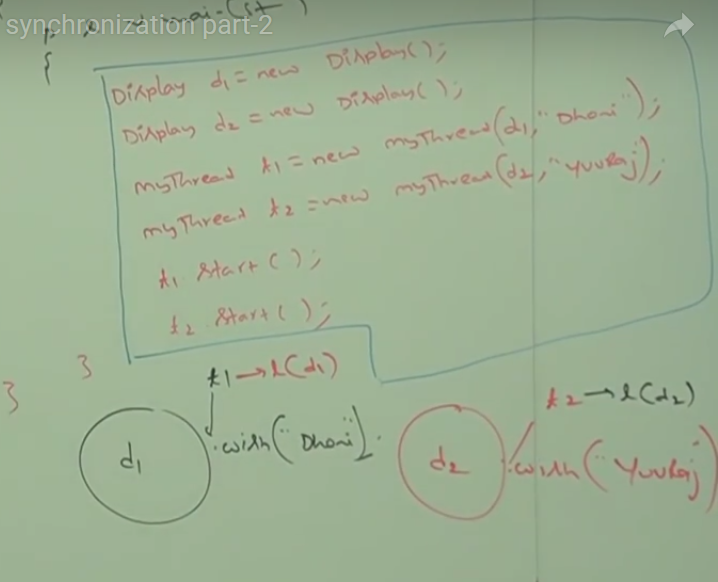 synchronization part-2
{
Display d1 = new Display();
Display d2 = new Display();
myThread t1 = new myThread(d1, "Dhoni");
myThread t2 = new myThread(d2, "Yuvraj");
t1. Start();
t2. Start();
}
}
t1→l(d1)
t2→l(d2)
d1
.wish("Dhoni").
d2
.wish("Yuvraj